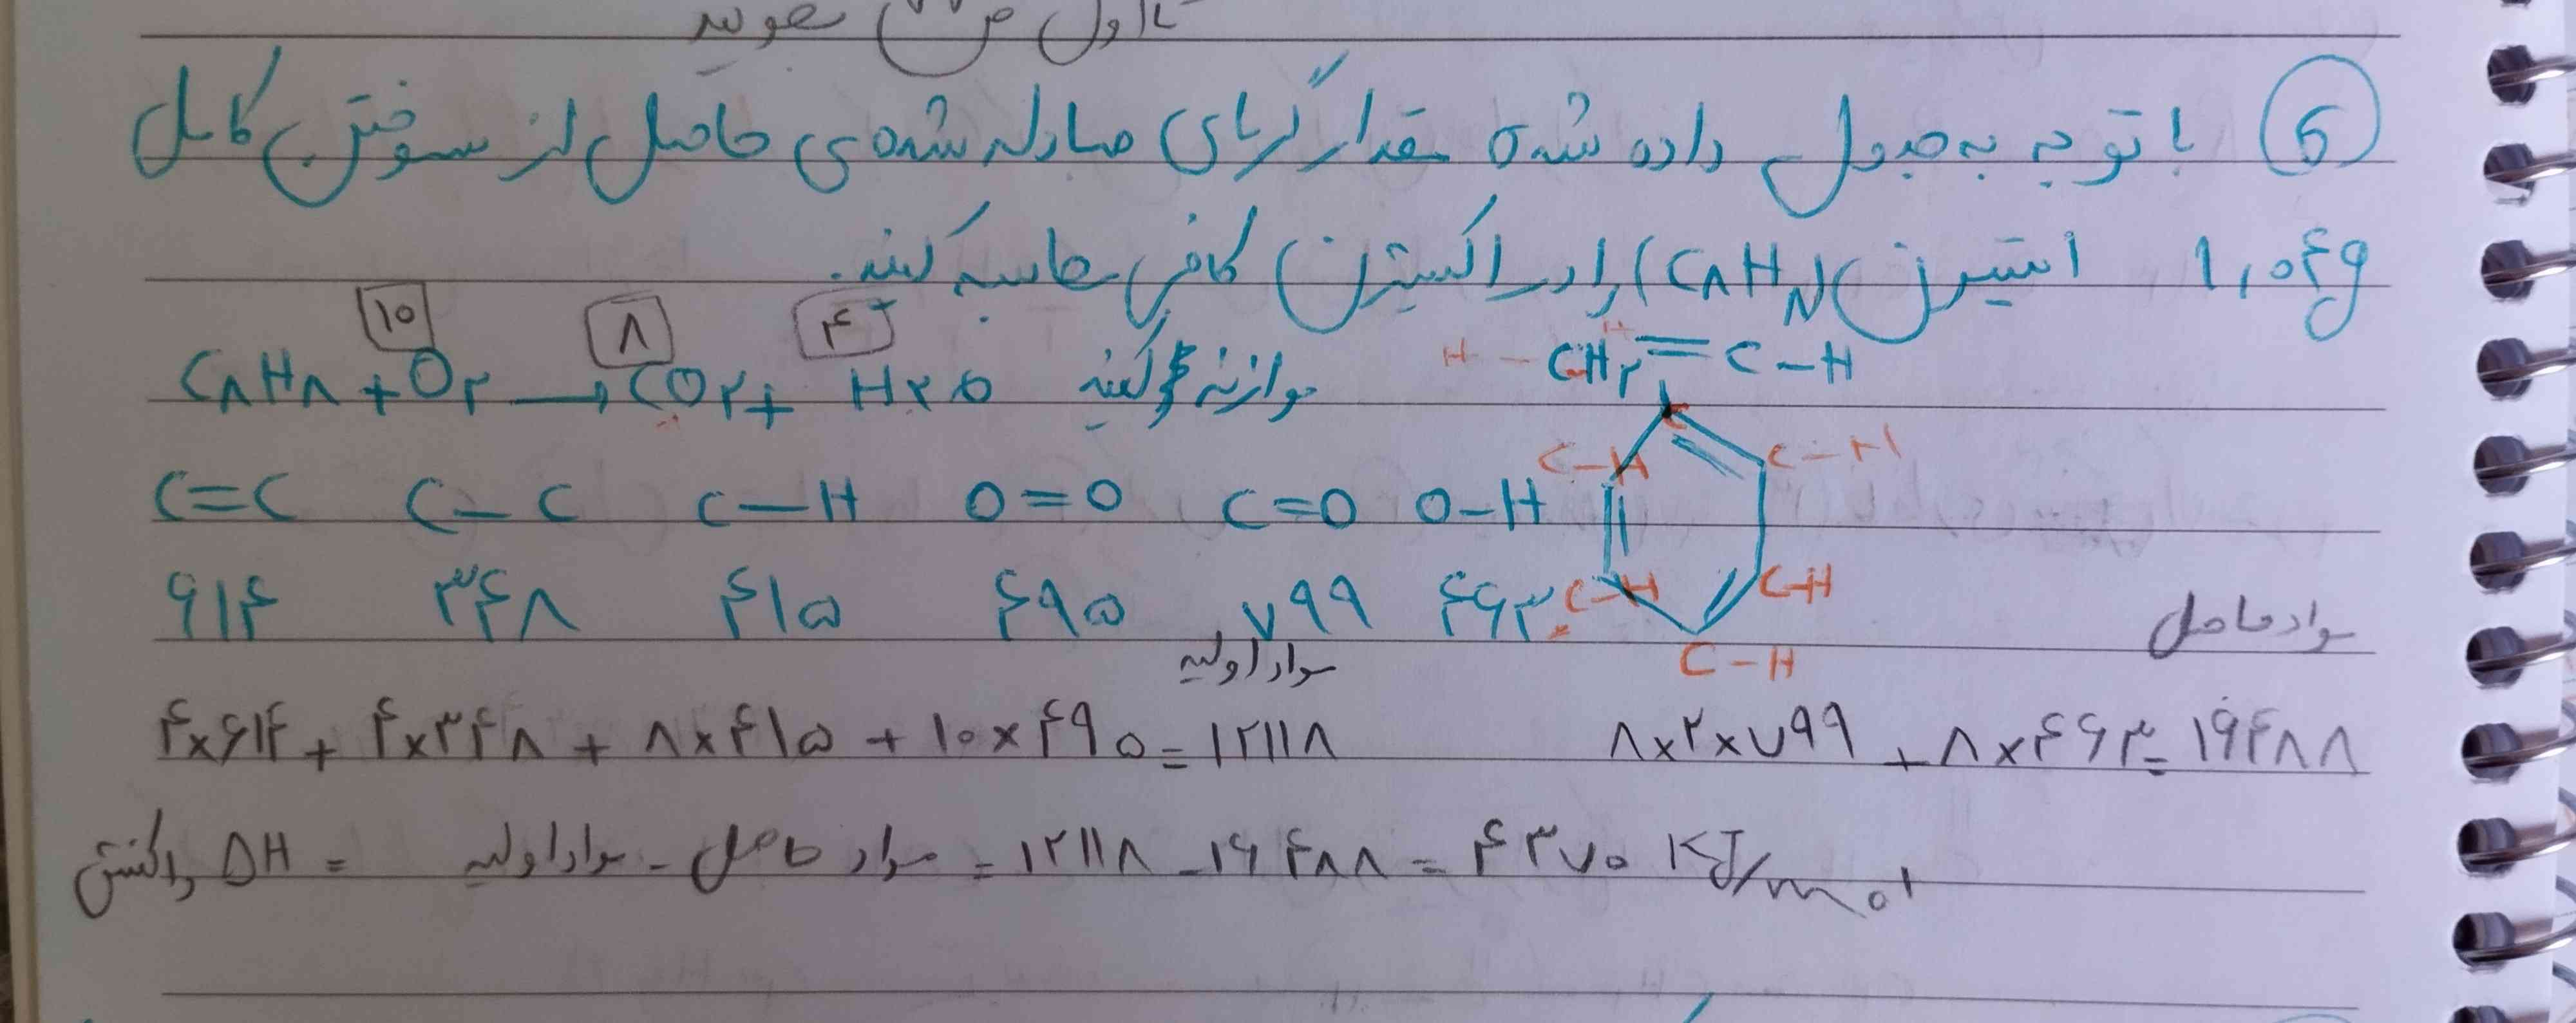 شوند
۶ با توجه به جدول داده شده مقدار گرمای مبادله شده‌ی حاصل از سوختن کامل
۱,۰۴g استیرن (C۸H۸) را در اکسیژن کافی محاسبه کنید.
۱۰ ۸ ۴
C۸H۸ + O۲ → CO۲ + H۲O موازنه کنید
H - CH۲ = C - H
C
C-H C-H
C=C C-C C-H O=O C=O O-H
۶۱۴ ۳۴۸ ۴۱۵ ۴۹۵ ۷۹۹ ۴۶۳
C-H C-H
C-H
مواد اولیه مواد حاصل
۴×۶۱۴ + ۴×۳۴۸ + ۸×۴۱۵ + ۱۰×۴۹۵ = ۱۲۱۱۸ ۸×۲×۷۹۹ + ۸×۴۶۳ = ۱۶۴۸۸
واکنش ΔH = مواد اولیه - مواد حاصل = ۱۲۱۱۸ - ۱۶۴۸۸ = ۴۳۷۰ KJ/mol